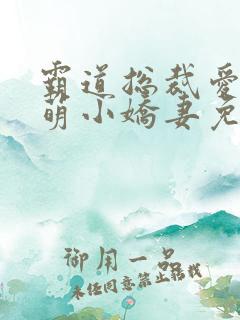 霸道总裁爱
萌小嬌妻免
御用一品
未经同意禁止转载